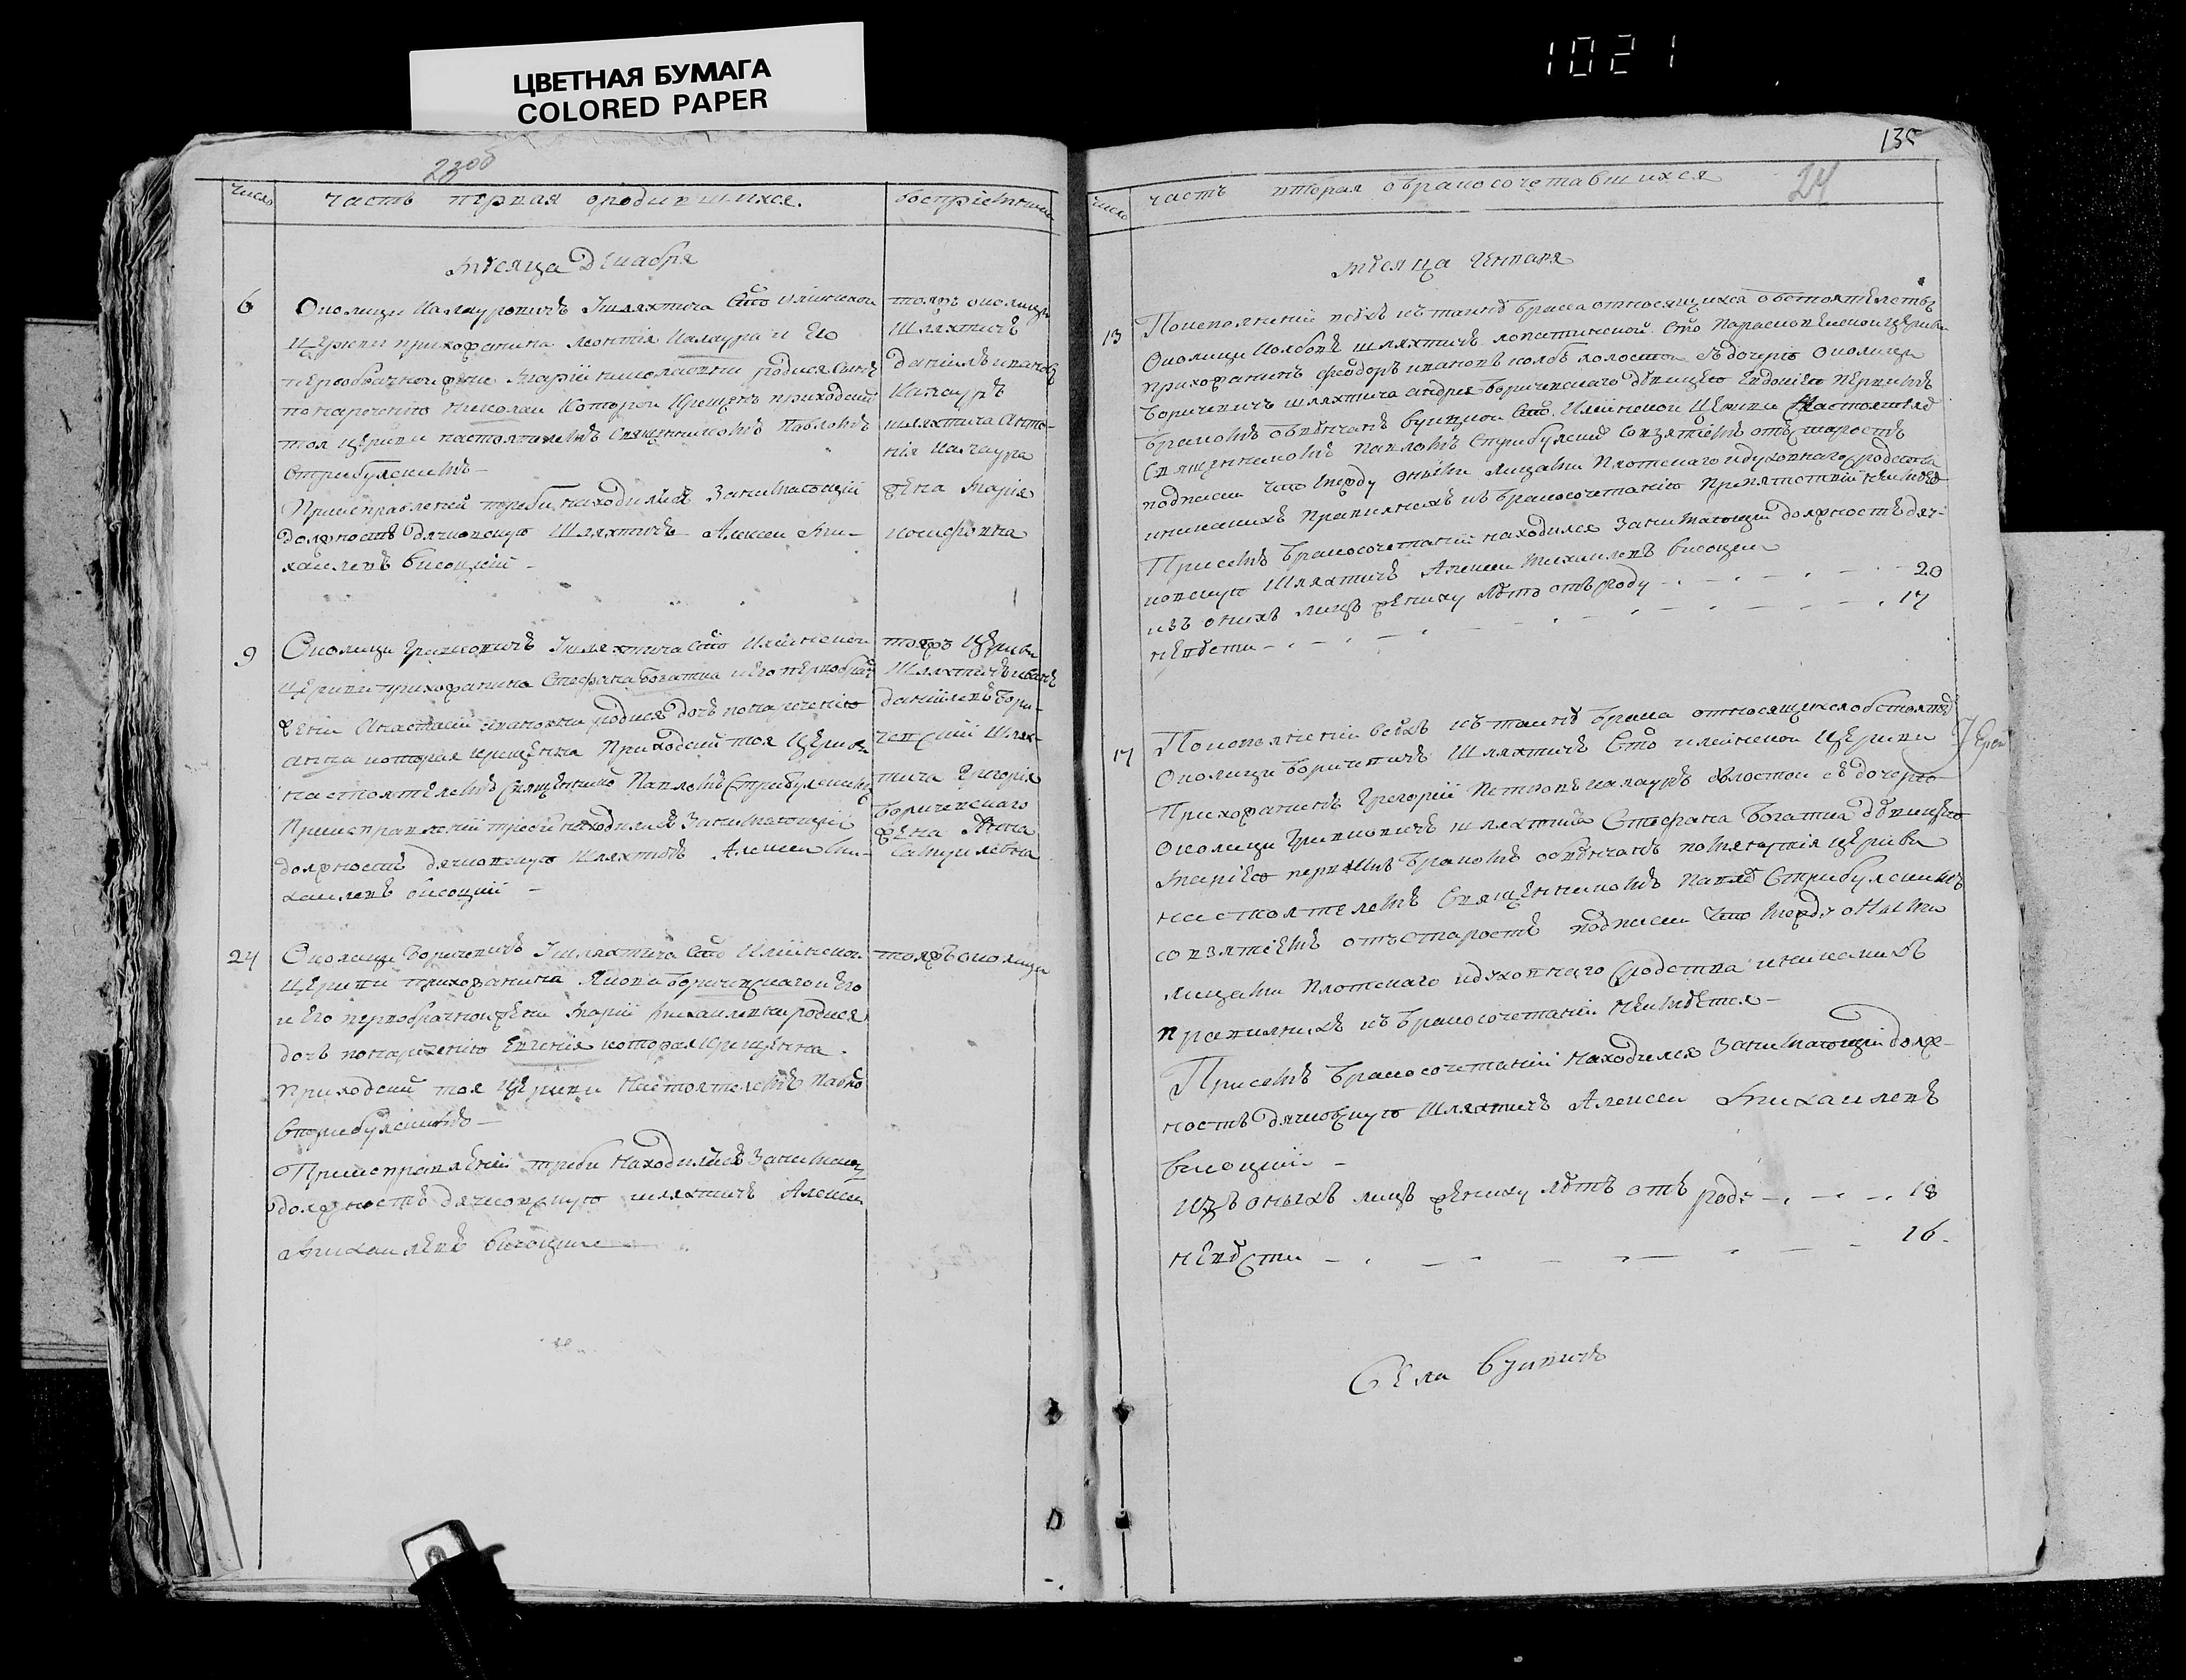 ЦВЕТНАЯ БУМАГА
COLORED PAPER
1021
135
23об
Число
Часть первая ородившихся.
Воспріемники
Месяца Декабря
6
Околици Калауровичъ Шляхтича Сто Илiинскои
церкви прихожанина Леонтія Калаура и Его
первобрачной жени Маріи Николаевни родися синъ
понаречению Николаи Которои Крещенъ приходскій
тоя церкви настоятелемъ Священникомъ Павломъ
Стрибулскимъ
При исправлений требы находился Занимающій
должность дячковскую Шляхтичъ Алексеи Ми-
хаилевъ Висоцкій
тояжъ околици
Шляхтичъ
даніилъ ивановъ
Калауръ
шляхтича Анто-
нія Калаура
жена Марія
иосифовна
9
Околици Гринковичъ Шляхтича Сто Илiинскои
церкви прихожанина Стефана Богатка и Его первобрач
жени Анастасіи Ивановни родися дочъ понаречению
Анна которая крещенна Приходскій тоя Церкви
настоятелемъ Священнико Павломъ Стрибулскимъ
При исправлений треби находился Занимающій
должность дячковскую Шляхтичъ Алексеи Ми-
хаилевъ Висоцкій
тояжъ Церкви
Шляхтичъ иванъ
даніилевъ Бори-
чевскій Шлях-
тича Григорія
Боричевскаго
жена Анна
Самуилевна
24
Околици Боричевичъ Шляхтича Сто Илiинскои
Церкви прихожанина Якова Боричевскаго и Его
и Его первобрачнои жени Маріи Михаилевни родися
дочъ понаречению Евгенія которая крещенна
приходскій тоя Церкви Настоятелемъ Павло
Стрибулскимъ
При исправлений треби Находился Занимающ
должность дячковскую шляхтичъ Алексеи
Михаилевъ Висоцкій
тояжъ околици
24
Число
часть вторая обракосочетавшихся
месяца Генваря
13
Поисполнений всехъ къ таинствѣ брака относящихся обстоятелствъ
Околици Колбовъ шляхтичъ лопатинской Сто Параскевіевскои церкви
прихожанинъ Феодоръ ивановъ колбъ холостои съ дочерю Околици
Боричевичъ шляхтича Андрея Боричевскаго дѣвицею Евдокіею первимъ
бракомъ обвенчанъ Сто Илiинскои Церкви Настоятел
Священникомъ Павломъ Стрибулскимъ Совзятіемъ отъ старостъ
подписки что между оними лицами Плотскаго идуховнаго сродства
иникакихъ Правилнихъ къ бракосочетанію Препятствій Неимеется
Присемъ бракосочетаний находился Занимающи должность дяч-
ковскую Шляхтичъ Алексеи Михаилевъ Висоцкій
изъ онихъ лицъ жениху летъ отъ роду 20
невести 17
17
Поисполнений всехъ къ таинствѣ брака относящихся обстоятел
Околици Боричевичъ Шляхтичъ Сто илеинскои Церкви
Прихожанинъ Григорій Петровъ калауръ холостои съ дочерю
Околици Гринковичъ шляхтича Стефана Богатка дѣвицею
Маріею первимъ бракомъ обвенчанъ Церкви
настоятелемъ Священникомъ Павло Стрибулскимъ
совзятіемъ отъ старостъ подписки что между оними
лицами Плотскаго идуховнаго сродства иникакихъ
правилнихъ къ бракосочетаний неимеется
Присемъ бракосочетаний находился Занимающій долж-
ность дячковскую шляхтичъ Алексеи Михаилевъ
Висоцкій
изъ оныхъ лицъ жениху летъ отъ роду 18
невѣсти 16
Іереи
Села